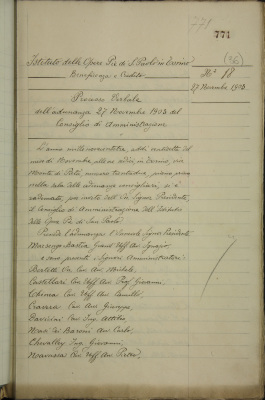 771
771
Istituto delle Opere Pie di S. Paolo in Torino
(36)
Beneficenza e Credito
N.° 18
27 Novembre 1903
Processo Verbale
dell'adunanza 27 Novembre 1903 del
Consiglio di Amministrazione
L'anno millenovecentotre, addì ventisette del
mese di Novembre, alle ore in Torino, via
Monte di Pietà, numero trentadue, piano primo
nella sala delle adunanze consigliari, si è
adunato, per invito dell' Ill. Signor Presidente,
il Consiglio di Amministrazione dell'Istituto
delle Opere Pie di San Paolo.
Presiede l'adunanza il Signor Presidente
Marsengo Bastia Grand'Uff. Avv. Ignazio,
e sono presenti i Signori Amministratori:
Bertetti Avv. Michele,
Castellari Com. Uff. Avv. Prof. Giovanni,
Avv. Camillo
Avv. Giuseppe,
Davicini Cav. Ing. Attilio
Baroni Avv. Carlo,
Chevalley Ing. Giovanni,
Cav. Uff. Avv. Pietro,